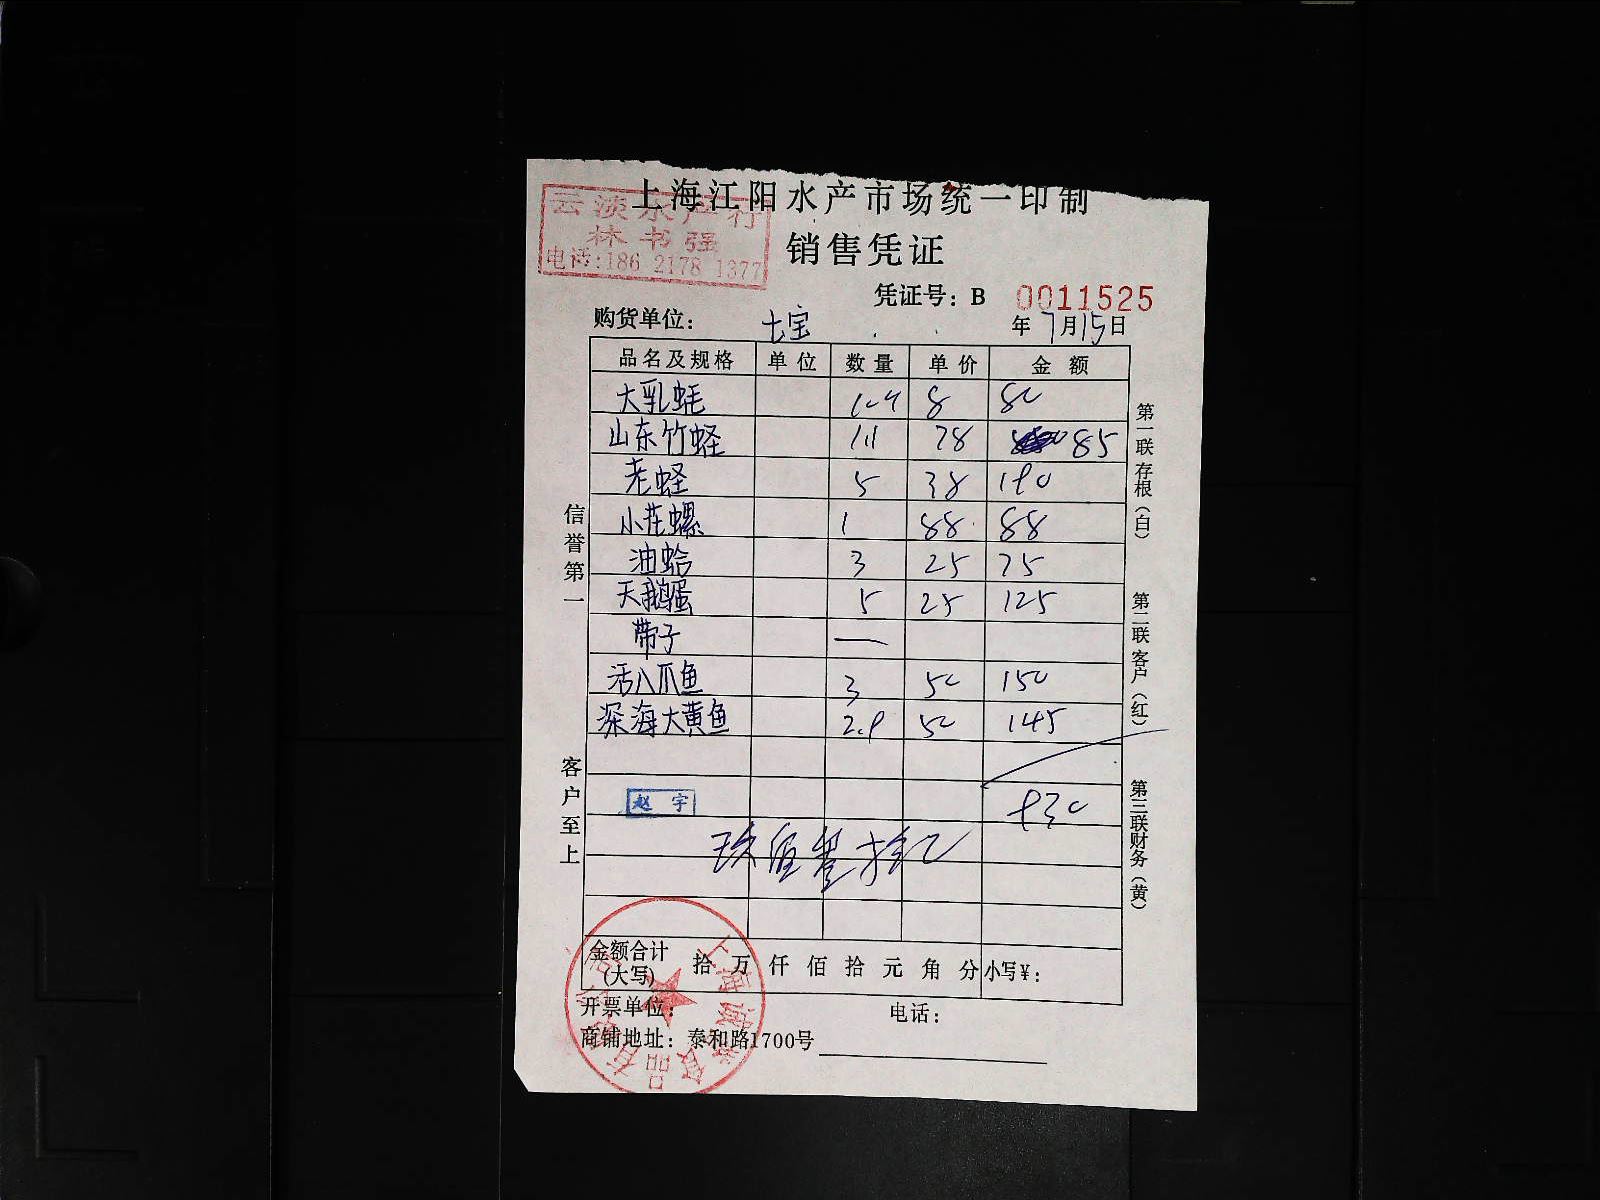 上海江阳水产市场统一印制
云淡水产行
林书强
电话:186 2178 1377
销售凭证
凭证号: B 0011525
购货单位: 七宝 年 7月15日
品名及规格 单位 数量 单价 金额
大乳蚝 8 80
山东竹蛏 1.1 78 85
老蛏 5 38 190
小花螺 1 88 88
油蛤 3 25 75
天鹅蛋 5 25 125
带子 —
活八爪鱼 3 50 150
深海大黄鱼 2.9 50 145
赵宇 930
玖佰叁拾元
金额合计(大写) 拾 万 仟 佰 拾 元 角 分 小写¥:
开票单位: 电话:
商铺地址: 泰和路1700号
信誉第一
客户至上
第一联存根(白)
第二联客户(红)
第三联财务(黄)